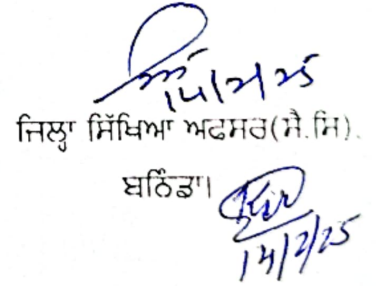 14/2/25
ਜਿਲ੍ਹਾ ਸਿੱਖਿਆ ਅਫਸਰ(ਸੈ.ਸਿ).
ਬਠਿੰਡਾ।
14/2/25